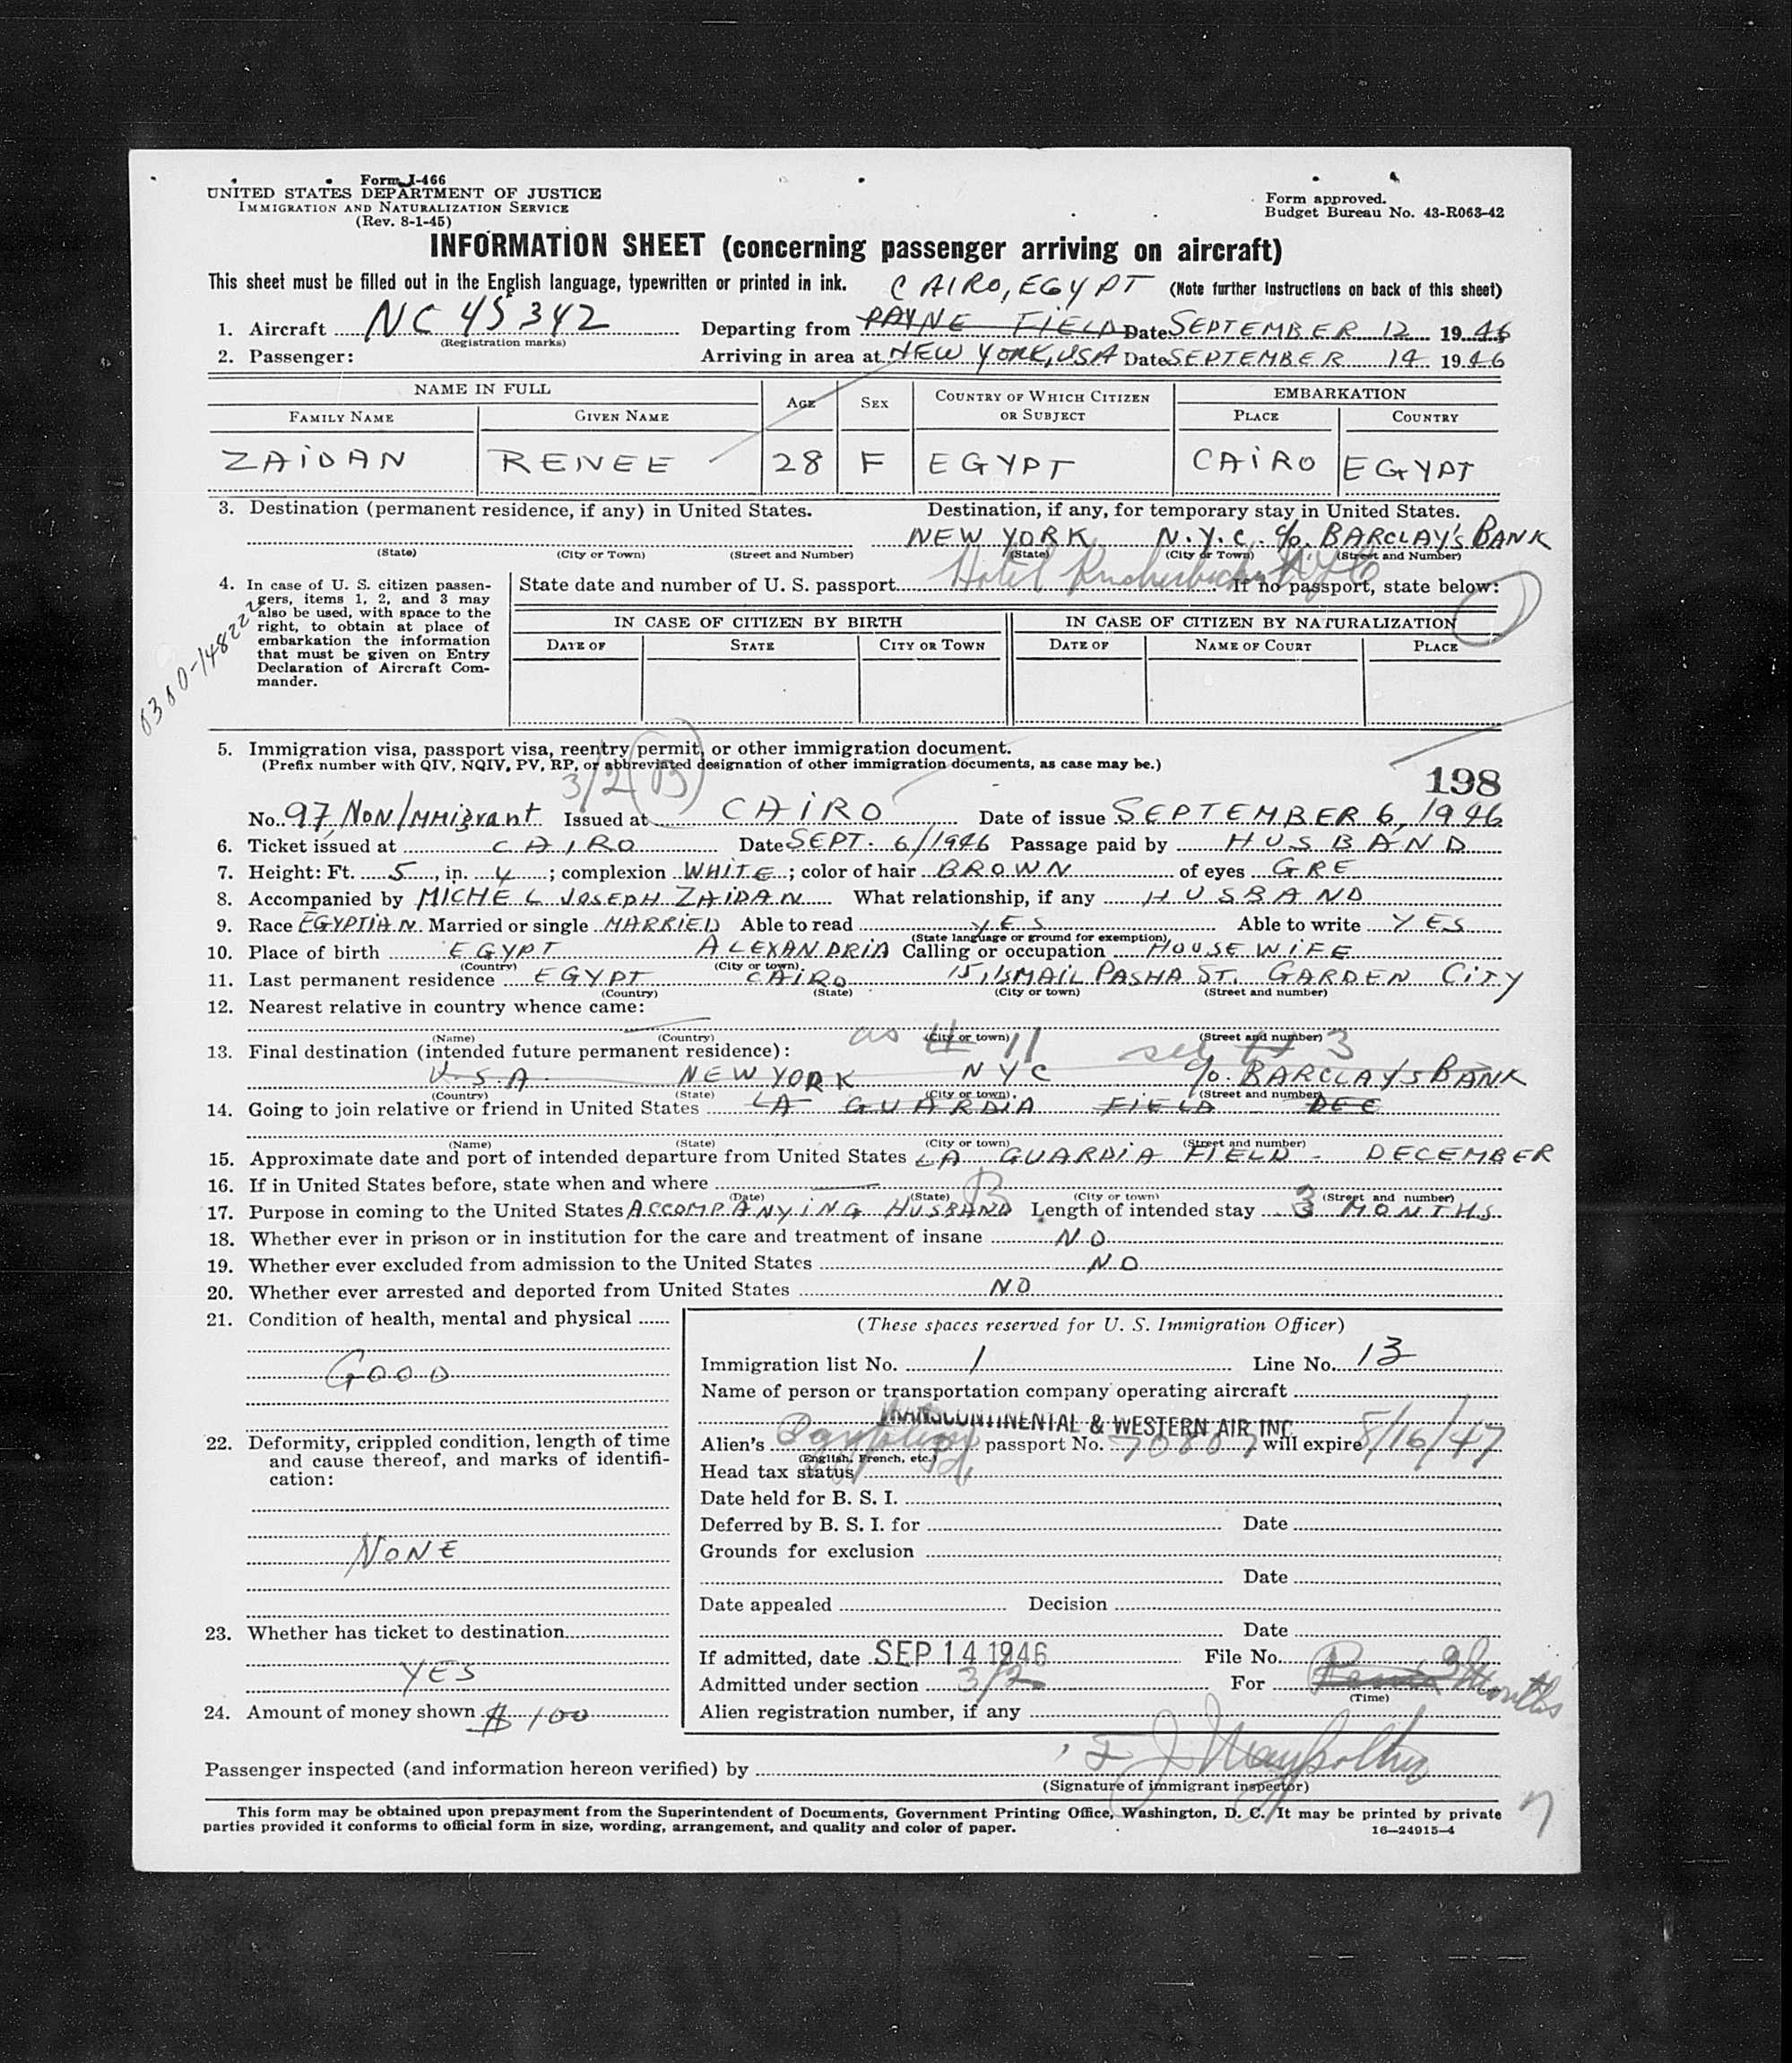 Form I-466
UNITED STATES DEPARTMENT OF JUSTICE
IMMIGRATION AND NATURALIZATION SERVICE
(Rev. 8-1-45)
Form approved.
Budget Bureau No. 43-R063-42
INFORMATION SHEET (concerning passenger arriving on aircraft)
This sheet must be filled out in the English language, typewritten or printed in ink. CAIRO, EGYPT (Note further instructions on back of this sheet)
1. Aircraft NC 45342 Departing from PAYNE FIELD Date SEPTEMBER 12 1946
(Registration marks)
2. Passenger: Arriving in area at NEW YORK, USA Date SEPTEMBER 14 1946
NAME IN FULL AGE SEX COUNTRY OF WHICH CITIZEN OR SUBJECT EMBARKATION
FAMILY NAME GIVEN NAME PLACE COUNTRY
ZAIDAN RENEE 28 F EGYPT CAIRO EGYPT
3. Destination (permanent residence, if any) in United States. Destination, if any, for temporary stay in United States.
NEW YORK N.Y.C. c/o. BARCLAY'S BANK
(State) (City or Town) (Street and Number) (State) (City or Town) (Street and Number)
4. In case of U. S. citizen passengers, items 1, 2, and 3 may also be used, with space to the right, to obtain at place of embarkation the information that must be given on Entry Declaration of Aircraft Commander.
State date and number of U. S. passport Hotel NYC If no passport, state below:
IN CASE OF CITIZEN BY BIRTH IN CASE OF CITIZEN BY NATURALIZATION
DATE OF STATE CITY OR TOWN DATE OF NAME OF COURT PLACE
5. Immigration visa, passport visa, reentry permit, or other immigration document.
(Prefix number with QIV, NQIV, PV, RP, or abbreviated designation of other immigration documents, as case may be.)
3/2 B
198
No. 97 Non/Immigrant Issued at CAIRO Date of issue SEPTEMBER 6, 1946
6. Ticket issued at CAIRO Date SEPT. 6/1946 Passage paid by HUSBAND
7. Height: Ft. 5, in. 4; complexion WHITE; color of hair BROWN of eyes GRE
8. Accompanied by MICHEL JOSEPH ZAIDAN What relationship, if any HUSBAND
9. Race EGYPTIAN Married or single MARRIED Able to read YES Able to write YES
(State language or ground for exemption)
10. Place of birth EGYPT ALEXANDRIA Calling or occupation HOUSEWIFE
(Country) (City or town)
11. Last permanent residence EGYPT CAIRO 15, ISMAIL PASHA ST. GARDEN CITY
(Country) (State) (City or town) (Street and number)
12. Nearest relative in country whence came:
as # 11
(Name) (Country) (City or town) (Street and number)
13. Final destination (intended future permanent residence): 3
U.S.A. NEW YORK NYC c/o. BARCLAYS BANK
(Country) (State) (City or town) (Street and number)
14. Going to join relative or friend in United States LA GUARDIA FIELD DEC
(Name) (State) (City or town) (Street and number)
15. Approximate date and port of intended departure from United States LA GUARDIA FIELD - DECEMBER
16. If in United States before, state when and where
(Date) (State) (City or town) (Street and number)
B
17. Purpose in coming to the United States ACCOMPANYING HUSBAND Length of intended stay 3 MONTHS
18. Whether ever in prison or in institution for the care and treatment of insane NO
19. Whether ever excluded from admission to the United States NO
20. Whether ever arrested and deported from United States NO
21. Condition of health, mental and physical
GOOD
22. Deformity, crippled condition, length of time and cause thereof, and marks of identification:
NONE
23. Whether has ticket to destination
YES
24. Amount of money shown $ 100
(These spaces reserved for U. S. Immigration Officer)
Immigration list No. 1 Line No. 13
Name of person or transportation company operating aircraft
TRANSCONTINENTAL & WESTERN AIR INC.
Alien's Egyptian passport No. 70807 will expire 8/16/47
(English, French, etc.)
Head tax status
Date held for B. S. I.
Deferred by B. S. I. for Date
Grounds for exclusion
Date
Date appealed Decision
Date
If admitted, date SEP 14 1946 File No.
Admitted under section 3/2 For 3 Months
(Time)
Alien registration number, if any
Passenger inspected (and information hereon verified) by
(Signature of immigrant inspector)
This form may be obtained upon prepayment from the Superintendent of Documents, Government Printing Office, Washington, D. C. It may be printed by private
parties provided it conforms to official form in size, wording, arrangement, and quality and color of paper.
16—24915-4